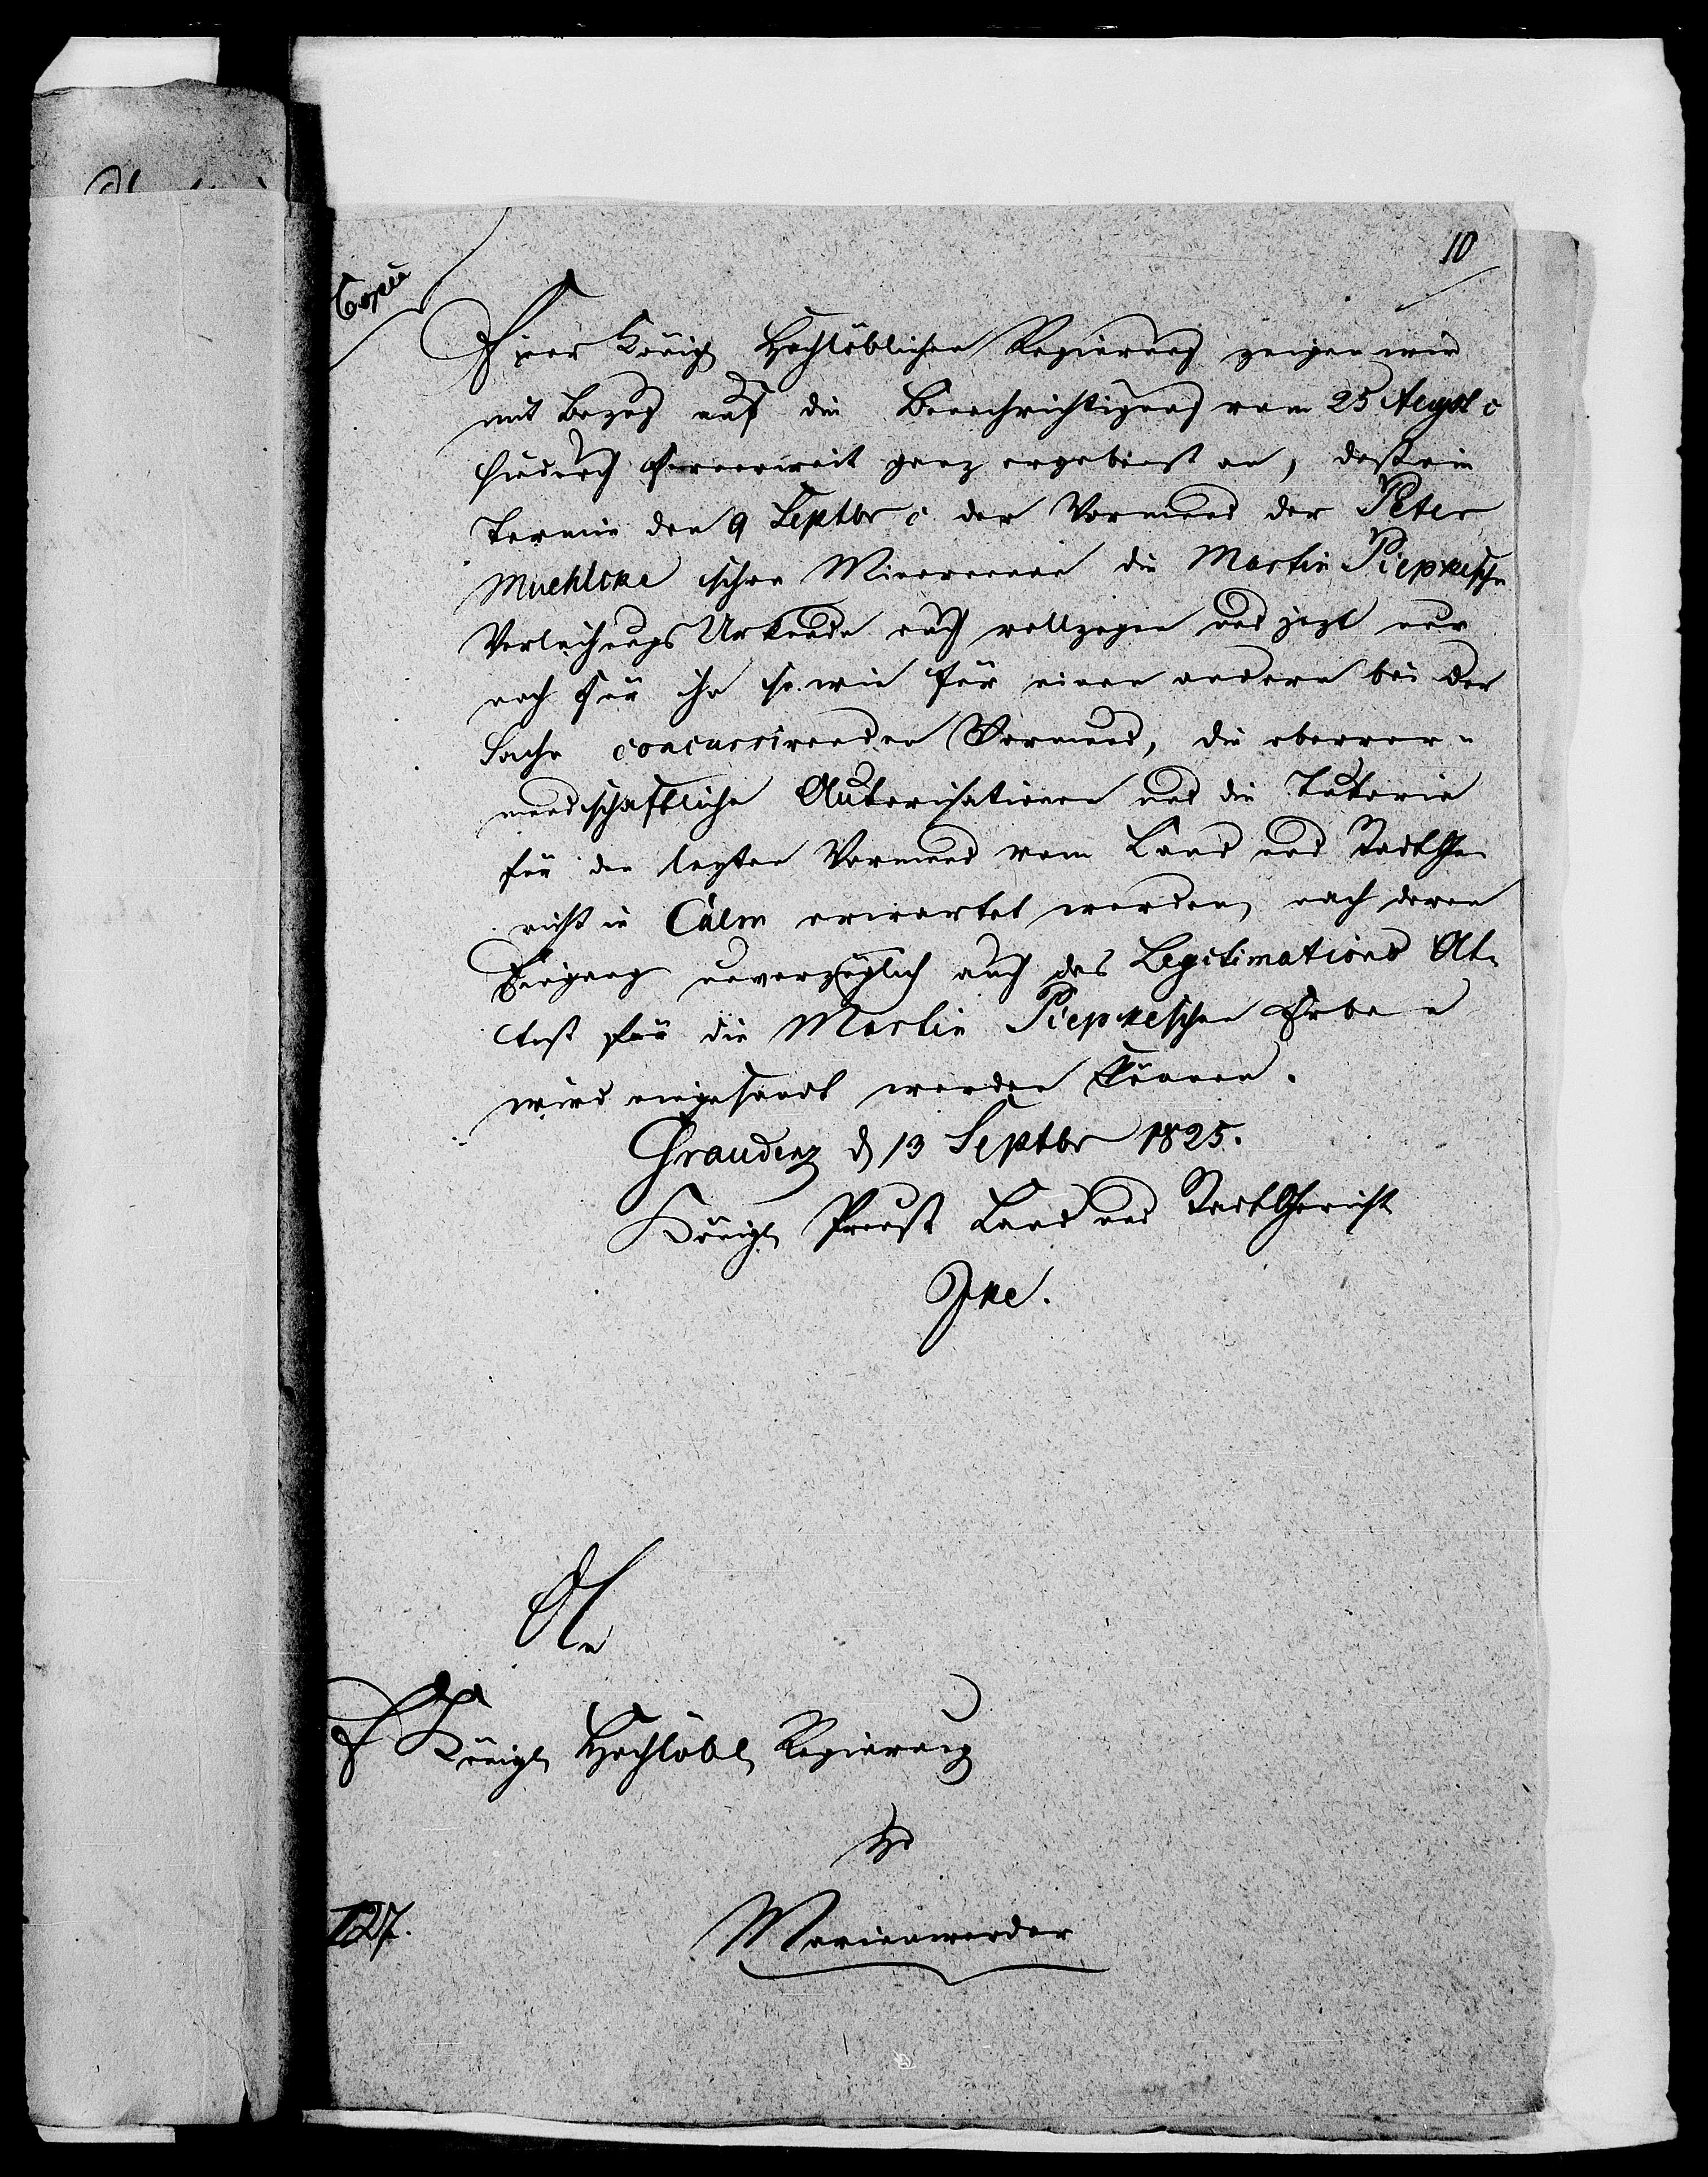 10
Copia
Einer Königl Hochlöblichen Regierung zeigen wir
mit Bezug auf die Benachrichtigung vom 25 August c
hiedurch ganz ergebenst an, daß im
Termin den 9 Septbr c der Vormund der Peter
Muehlcke schen Minorennen die Martin Piepkesche
Verleihungs Urkunde auch vollzogen und jezt nur
noch für ihn so wie für einen andern bei der
Sache concurrirenden Vormund, die obervor-
mundschaftliche Autorisationen und die Tutoria
für den lezten Vormund vom Land und StadtGe-
richt in Culm erwartet werden, nach deren
Eingang unverzüglich auch das Legitimations At-
test für die Martin Piepkeschen Erben
wird eingesandt werden können.
Graudenz d 13 Septbr 1825.
Königl Preuß Land und StadtGericht
An
E Königl Hochlöbl Regierung
zu
127.
Marienwerder